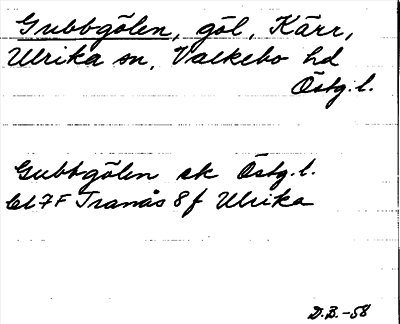 Gubbgölen, göl, Kärr,
Ulrika sn, Valkebo hd
Östg. l.
Gubbgölen ek Östg. l.
bl 7F Tranås 8f Ulrika
D.B.-58